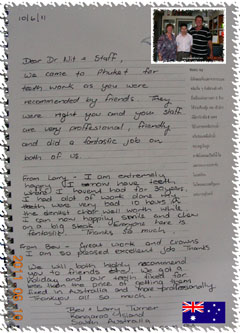 10/6/11
Dear Dr Nit + Staff,
We came to Phuket for
teeth work as you were
recommended by friends. They
were right you and your staff
are very professional, friendly
and did a fantastic job on
both of us.
From Larry - I am extremely
happy I now have teeth
which I haven't had for 30 years.
I had alot of work done my
teeth were very bad. 10 hours in
the dentist chair well worth while
I can now happily smile and chew
on a big steak. Everyone here is
fantastic. Thanks so much.
From Bev - Great work and crowns
I am so pleased excellent job Thanks
We will both highly recommend
you to friends etc. We got a
holiday and our teeth fixed for
less than the price of getting them
fixed in Australia and more professionally.
Thankyou all so much.
Bev + Larry Turner
Kangaroo Island
South Australia